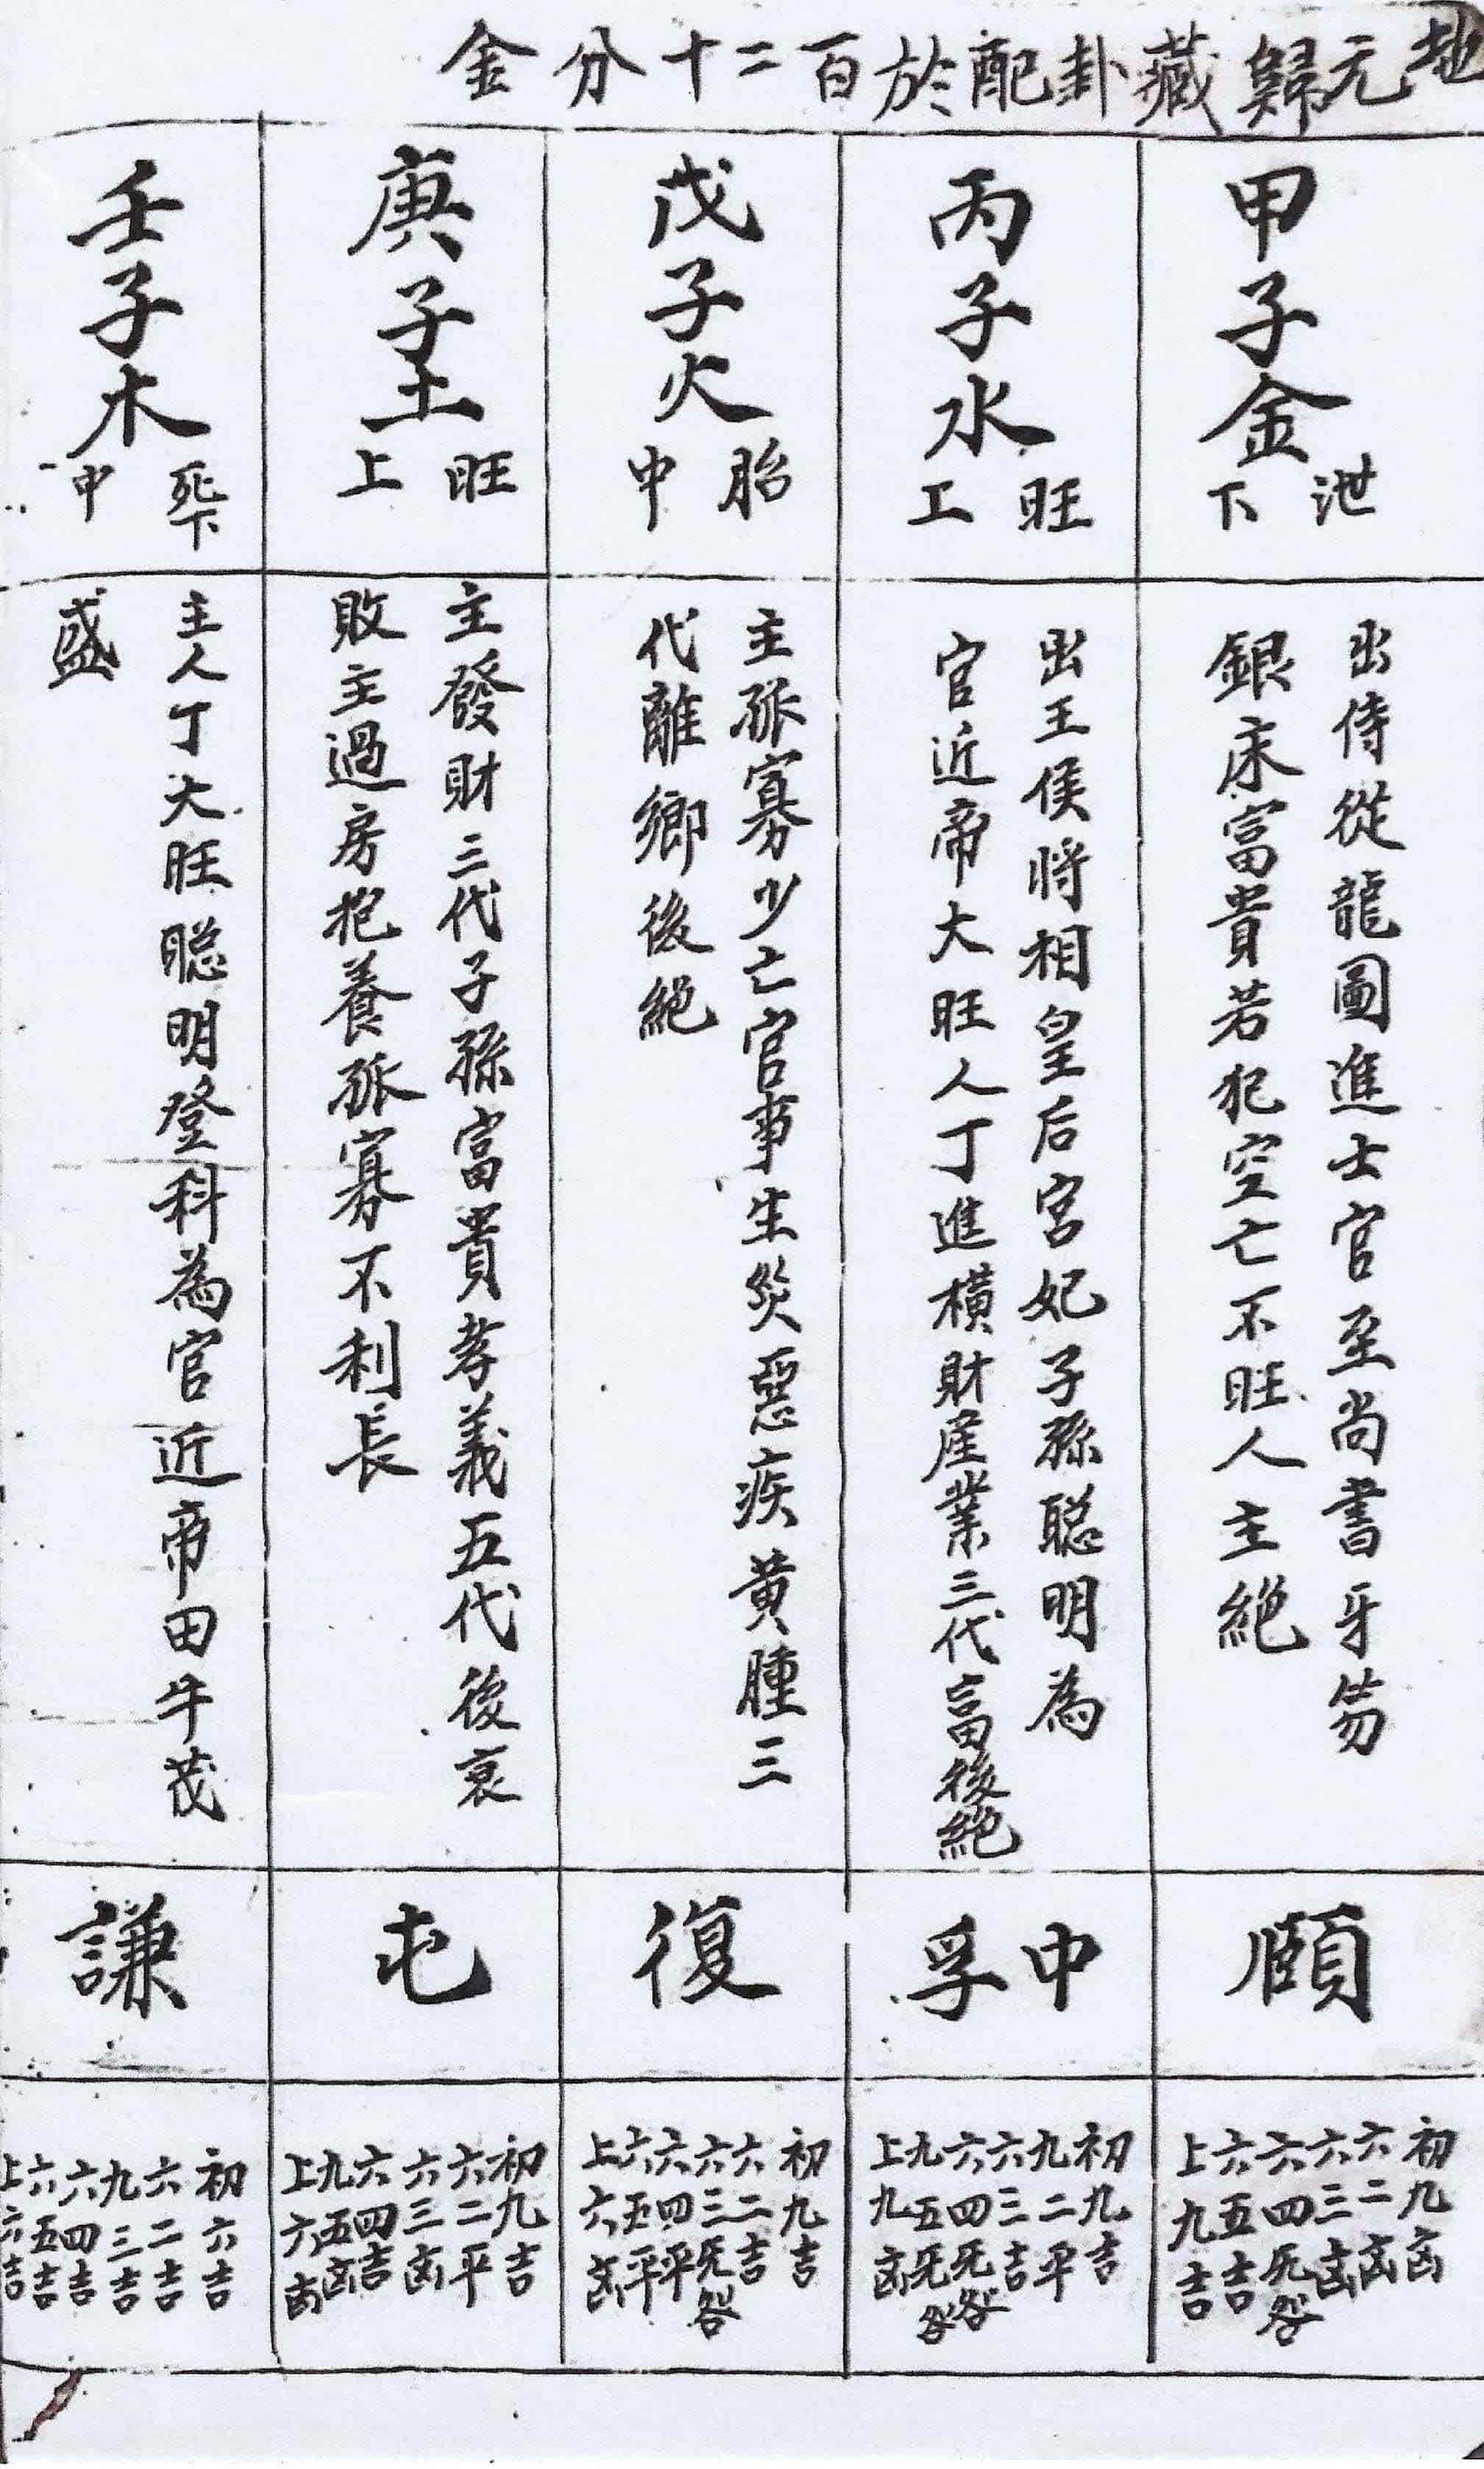 地元歸藏卦配於百二十分金
甲子金
泄
下
出侍從龍圖進士官至尚書牙笏
銀床富貴若犯空亡不旺人主絕
頤
初九凶
六二凶
六三凶
六四旡咎
六五吉
上九吉
丙子水
旺
工
出王侯將相皇后宮妃子孫聪明為
官近帝大旺人丁進橫財產業三代富後絕
中孚
初九吉
九二平
六三吉
六四旡咎
九五旡咎
上九凶
戊子火
胎
中
主孤寡少亡官事生災惡疾黃腫三
代離鄉後絕
復
初九吉
六二吉
六三旡咎
六四平
六五平
上六凶
庚子土
旺
上
主發財三代子孫富貴孝義五代後衰
敗主過房抱養孤寡不利長
屯
初九吉
六二平
六三凶
六四吉
九五凶
上六凶
壬子木
死下
中
主人丁大旺聪明登科為官近帝田牛茂
盛
謙
初六吉
六二吉
九三吉
六四吉
六五吉
上六吉